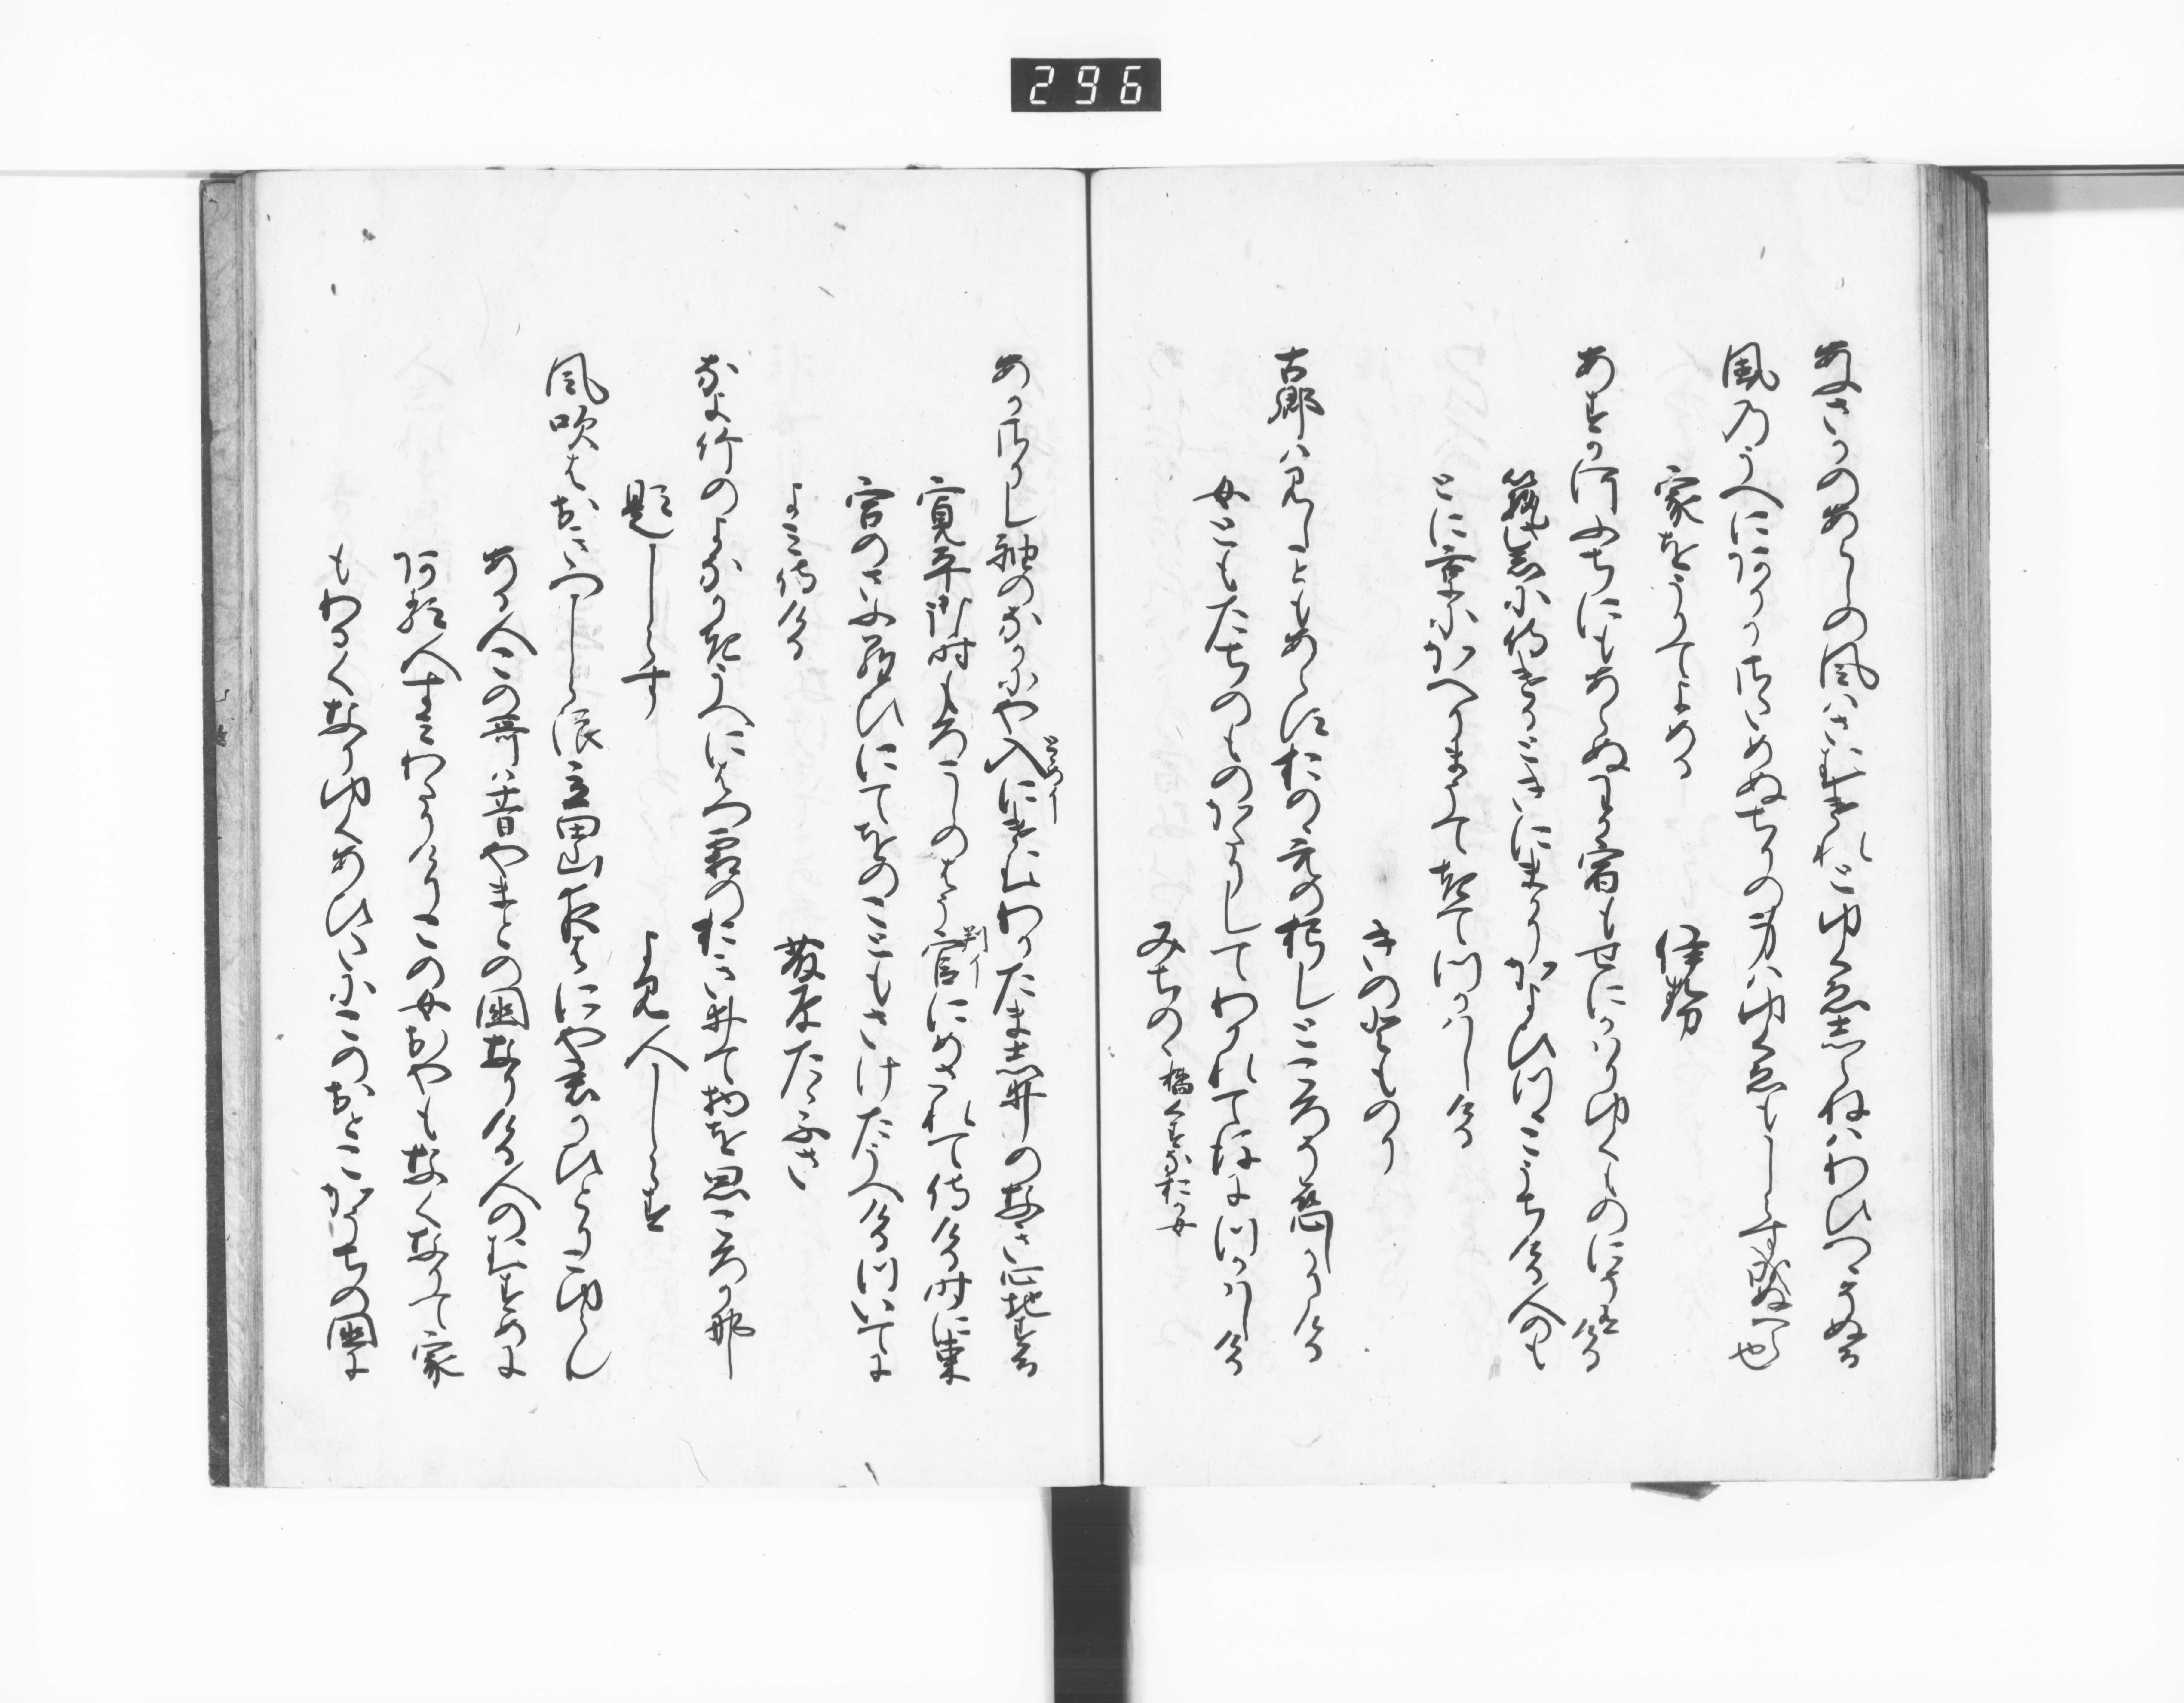 296
あふさかのあらしの風はさむけれとゆくゑしらねはわひつゝそぬる
風乃うへにありかさためぬちりの身はゆくゑもしらす成ぬへら也
家をうりてよめる
伊勢
あすか河ふちにもあらぬ我宿もせにかはりゆくものにそ有ける
筑紫に侍ける時にまかりかよひつゝこうちける人のも
とに京にかへりまうて起てつかはしける
きのとものり
古郷は見しこともあらすおのゝ元の朽しところそ恋しかりける
女ともたちのものかたりしてわかれてのちにつかはしける
みちのく 橘くすなおか女
あかさりし袖のなかにや入にけむわかたましゐのなき心地する
寛平御時もろこしのはう官にめされて侍ける時に東
判イ
宮のさふらひにてをのこともさけたうへけるついてに
よみ侍ける
藤原たゝふさ
なよ竹のよなか起うへにはつ霜のおきゐて物を思ころ哉
題しらす
よみ人しらす
風吹はおきつしら浪立田山夜はにや君かひとりこゆらん
ある人この哥は昔やまとの国なりける人のむすめに
ある人すみわたりけりこの女おやもなくなりて家
もわるくなりゆくあひたにこのおとこかうちの国に